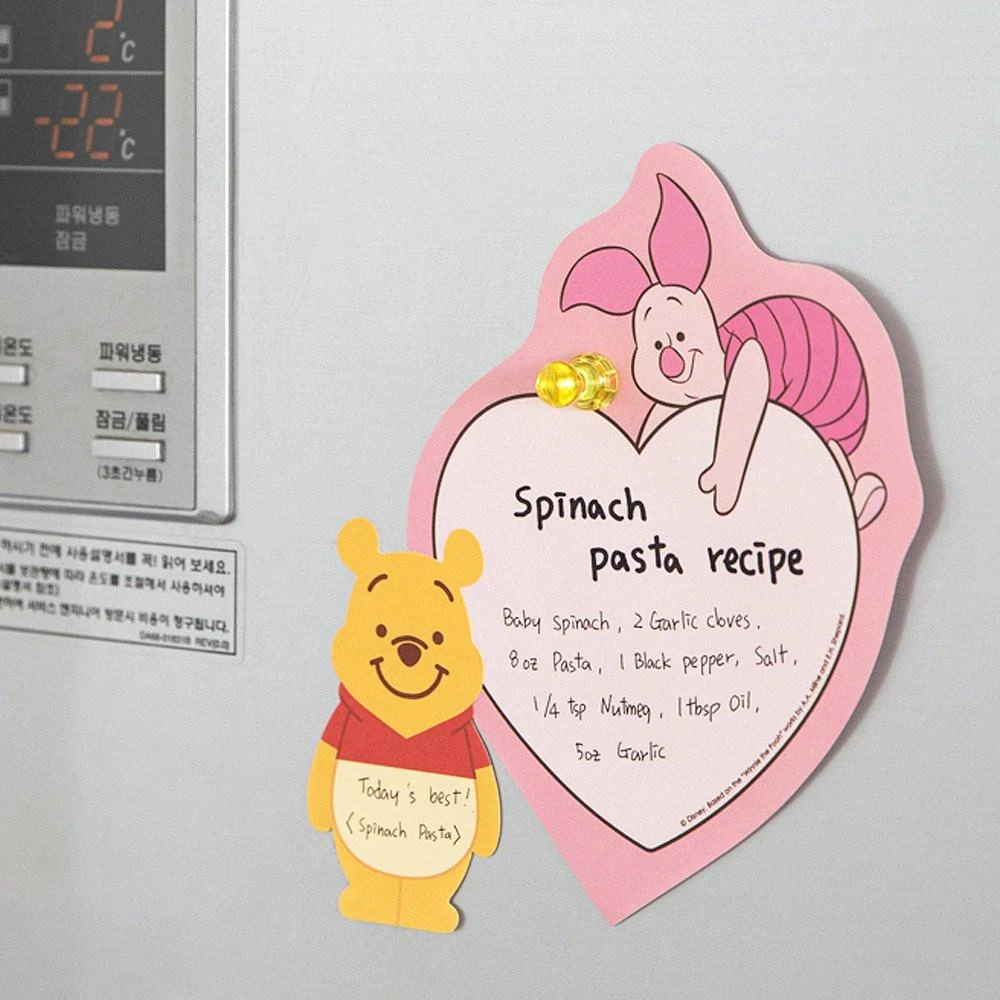 2°C
-22°C
파워냉동
잠금
온도
파워냉동
온도
잠금/풀림
(3초간누름)
하시기 전에 사용설명서를 꼭! 읽어 보세요.
따라 온도를 조절해서 사용하셔야
설명서 참조)
서비스 엔지니어 방문시 비용이 청구됩니다.
REV(0.0)
Spinach
pasta recipe
Baby spinach, 2 Garlic cloves.
8oz Pasta, 1 Black pepper, Salt,
1/4 tsp Nutmeg, 1tbsp Oil,
5oz Garlic
© Disney. Based on the "Winnie the Pooh" works by A.A. Milne and E.H. Shepard.
Today's best!
<Spinach Pasta>